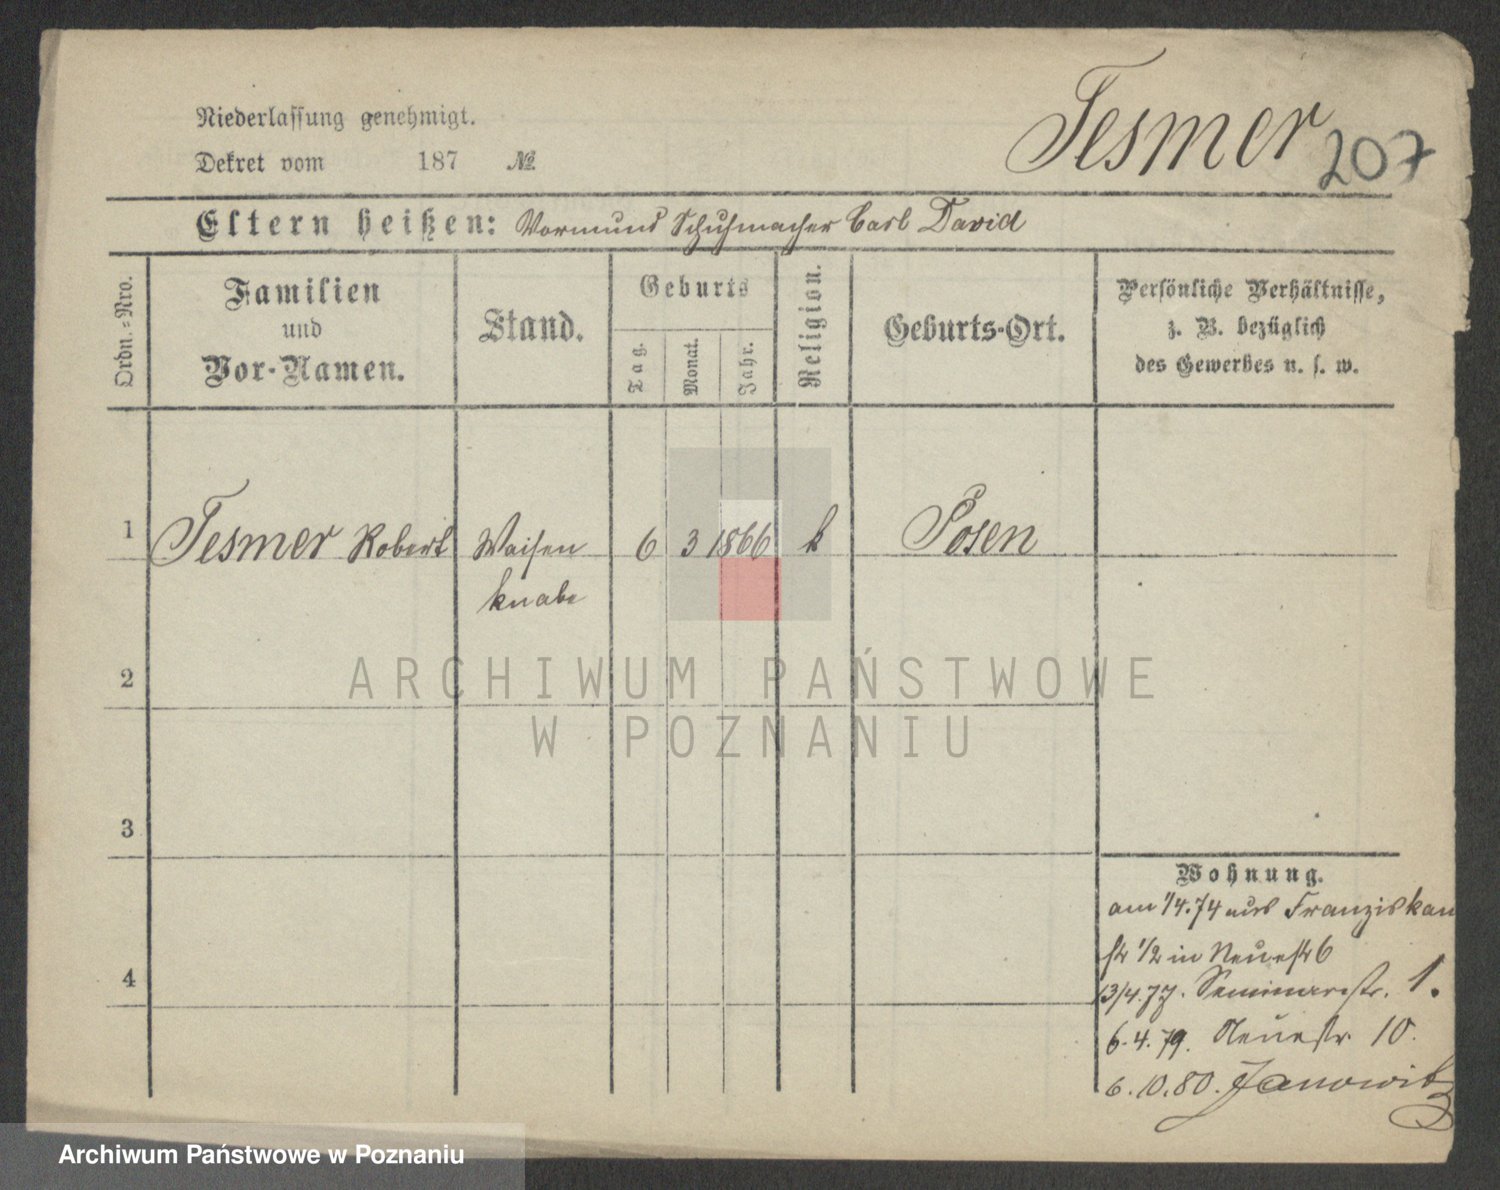 Tesmer 207
Niederlassung genehmigt.
Dekret vom 187 №
Eltern heißen: Vormund Schuhmacher Carl David
Ordn.-Nro.
Familien
und
Vor-Namen.
Stand.
Geburts
Tag.
Monat.
Jahr.
Religion.
Geburts-Ort.
Persönliche Verhältnisse,
z. B. bezüglich
des Gewerbes u. s. w.
1 Tesmer Robert Waisen 6 3 1866 k Posen
knabe
2
3
4
Wohnung.
am 1/4.74 aus Franziskan
str 1/2 in Neuestr 6
13/4.77. Seminarstr. 1.
6.4.79. Neuestr. 10.
6.10.80. Janowitz
ARCHIWUM PAŃSTWOWE
W POZNANIU
Archiwum Państwowe w Poznaniu